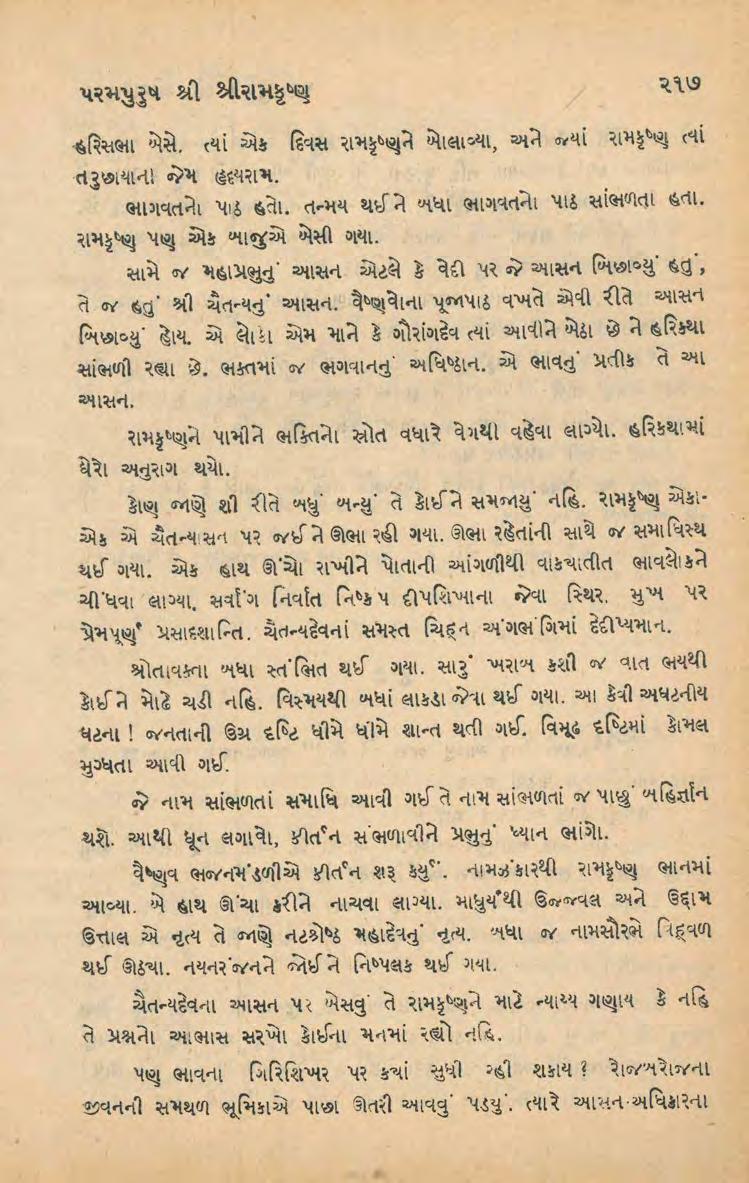 પરમપુરુષ શ્રી શ્રીરામકૃષ્ણ
૨૧૭
હરિસભા બેસે. ત્યાં એક દિવસ રામકૃષ્ણને બોલાવ્યા, અને જ્યાં રામકૃષ્ણ ત્યાં
તરુછાયાના જેમ હૃદયરામ.
ભાગવતનો પાઠ હતો. તન્મય થઈને બધા ભાગવતનો પાઠ સાંભળતા હતા.
રામકૃષ્ણ પણ એક બાજુએ બેસી ગયા.
સામે જ મહાપ્રભુનું આસન એટલે કે વેદી પર જે આસન બિછાવ્યું હતું,
તે જ હતું શ્રી ચૈતન્યનું આસન. વૈષ્ણવોના પૂજાપાઠ વખતે એવી રીતે આસન
બિછાવ્યું હોય. એ લોકો એમ માને કે ગૌરાંગદેવ ત્યાં આવીને બેઠા છે ને હરિકથા
સાંભળી રહ્યા છે. ભક્તમાં જ ભગવાનનું અધિષ્ઠાન. એ ભાવનું પ્રતીક તે આ
આસન.
રામકૃષ્ણને પામીને ભક્તિનો સ્રોત વધારે વેગથી વહેવા લાગ્યો. હરિકથામાં
ઘેરો અનુરાગ થયો.
કોણ જાણે શી રીતે બધું બન્યું તે કોઈને સમજાયું નહિ. રામકૃષ્ણ એકા-
એક એ ચૈતન્યાસન પર જઈને ઊભા રહી ગયા. ઊભા રહેતાંની સાથે જ સમાધિસ્થ
થઈ ગયા. એક હાથ ઊંચો રાખીને પોતાની આંગળીથી વાકચાતીત ભાવલોકને
ચીંધવા લાગ્યા. સર્વાંગ નિર્વાત નિષ્કંપ દીપશિખાના જેવા સ્થિર. મુખ પર
પ્રેમપૂર્ણ પ્રસાદશાન્તિ. ચૈતન્યદેવનાં સમસ્ત ચિહ્ન અંગભંગિમાં દેદીપ્યમાન.
શ્રોતાવક્તા બધા સ્તંભિત થઈ ગયા. સારું ખરાબ કશી જ વાત ભયથી
કોઈને મોઢે ચડી નહિ. વિસ્મયથી બધાં લાકડા જેવા થઈ ગયા. આ કેવી અઘટનીય
ઘટના ! જનતાની ઉગ્ર દષ્ટિ ધીમે ધીમે શાન્ત થતી ગઈ. વિમૂઢ દષ્ટિમાં કોમલ
મુગ્ધતા આવી ગઈ.
જે નામ સાંભળતાં સમાધિ આવી ગઈ તે નામ સાંભળતાં જ પાછું બહિર્જ્ઞાન
થશે. આથી ધૂન લગાવો, કીર્તન સંભળાવીને પ્રભુનું ધ્યાન ભાંગો.
વૈષ્ણવ ભજનમંડળીએ કીર્તન શરૂ કર્યું. નામઝંકારથી રામકૃષ્ણ ભાનમાં
આવ્યા. બે હાથ ઊંચા કરીને નાચવા લાગ્યા. માધુર્યથી ઉજ્જવલ અને ઉદ્દામ
ઉત્તાલ એ નૃત્ય તે જાણે નટશ્રેષ્ઠ મહાદેવનું નૃત્ય. બધા જ નામસૌરભે વિહ્વળ
થઈ ઊઠયા. નયનરંજનને જોઈને નિષ્પલક થઈ ગયા.
ચૈતન્યદેવના આસન પર બેસવું તે રામકૃષ્ણને માટે ન્યાય્ય ગણાય કે નહિ
તે પ્રશ્નનો આભાસ સરખો કોઈના મનમાં રહ્યો નહિ.
પણ ભાવના ગિરિશિખર પર કયાં સુધી રહી શકાય ? રોજબરોજના
જીવનની સમથળ ભૂમિકાએ પાછા ઊતરી આવવું પડયું. ત્યારે આસન-અધિકારના